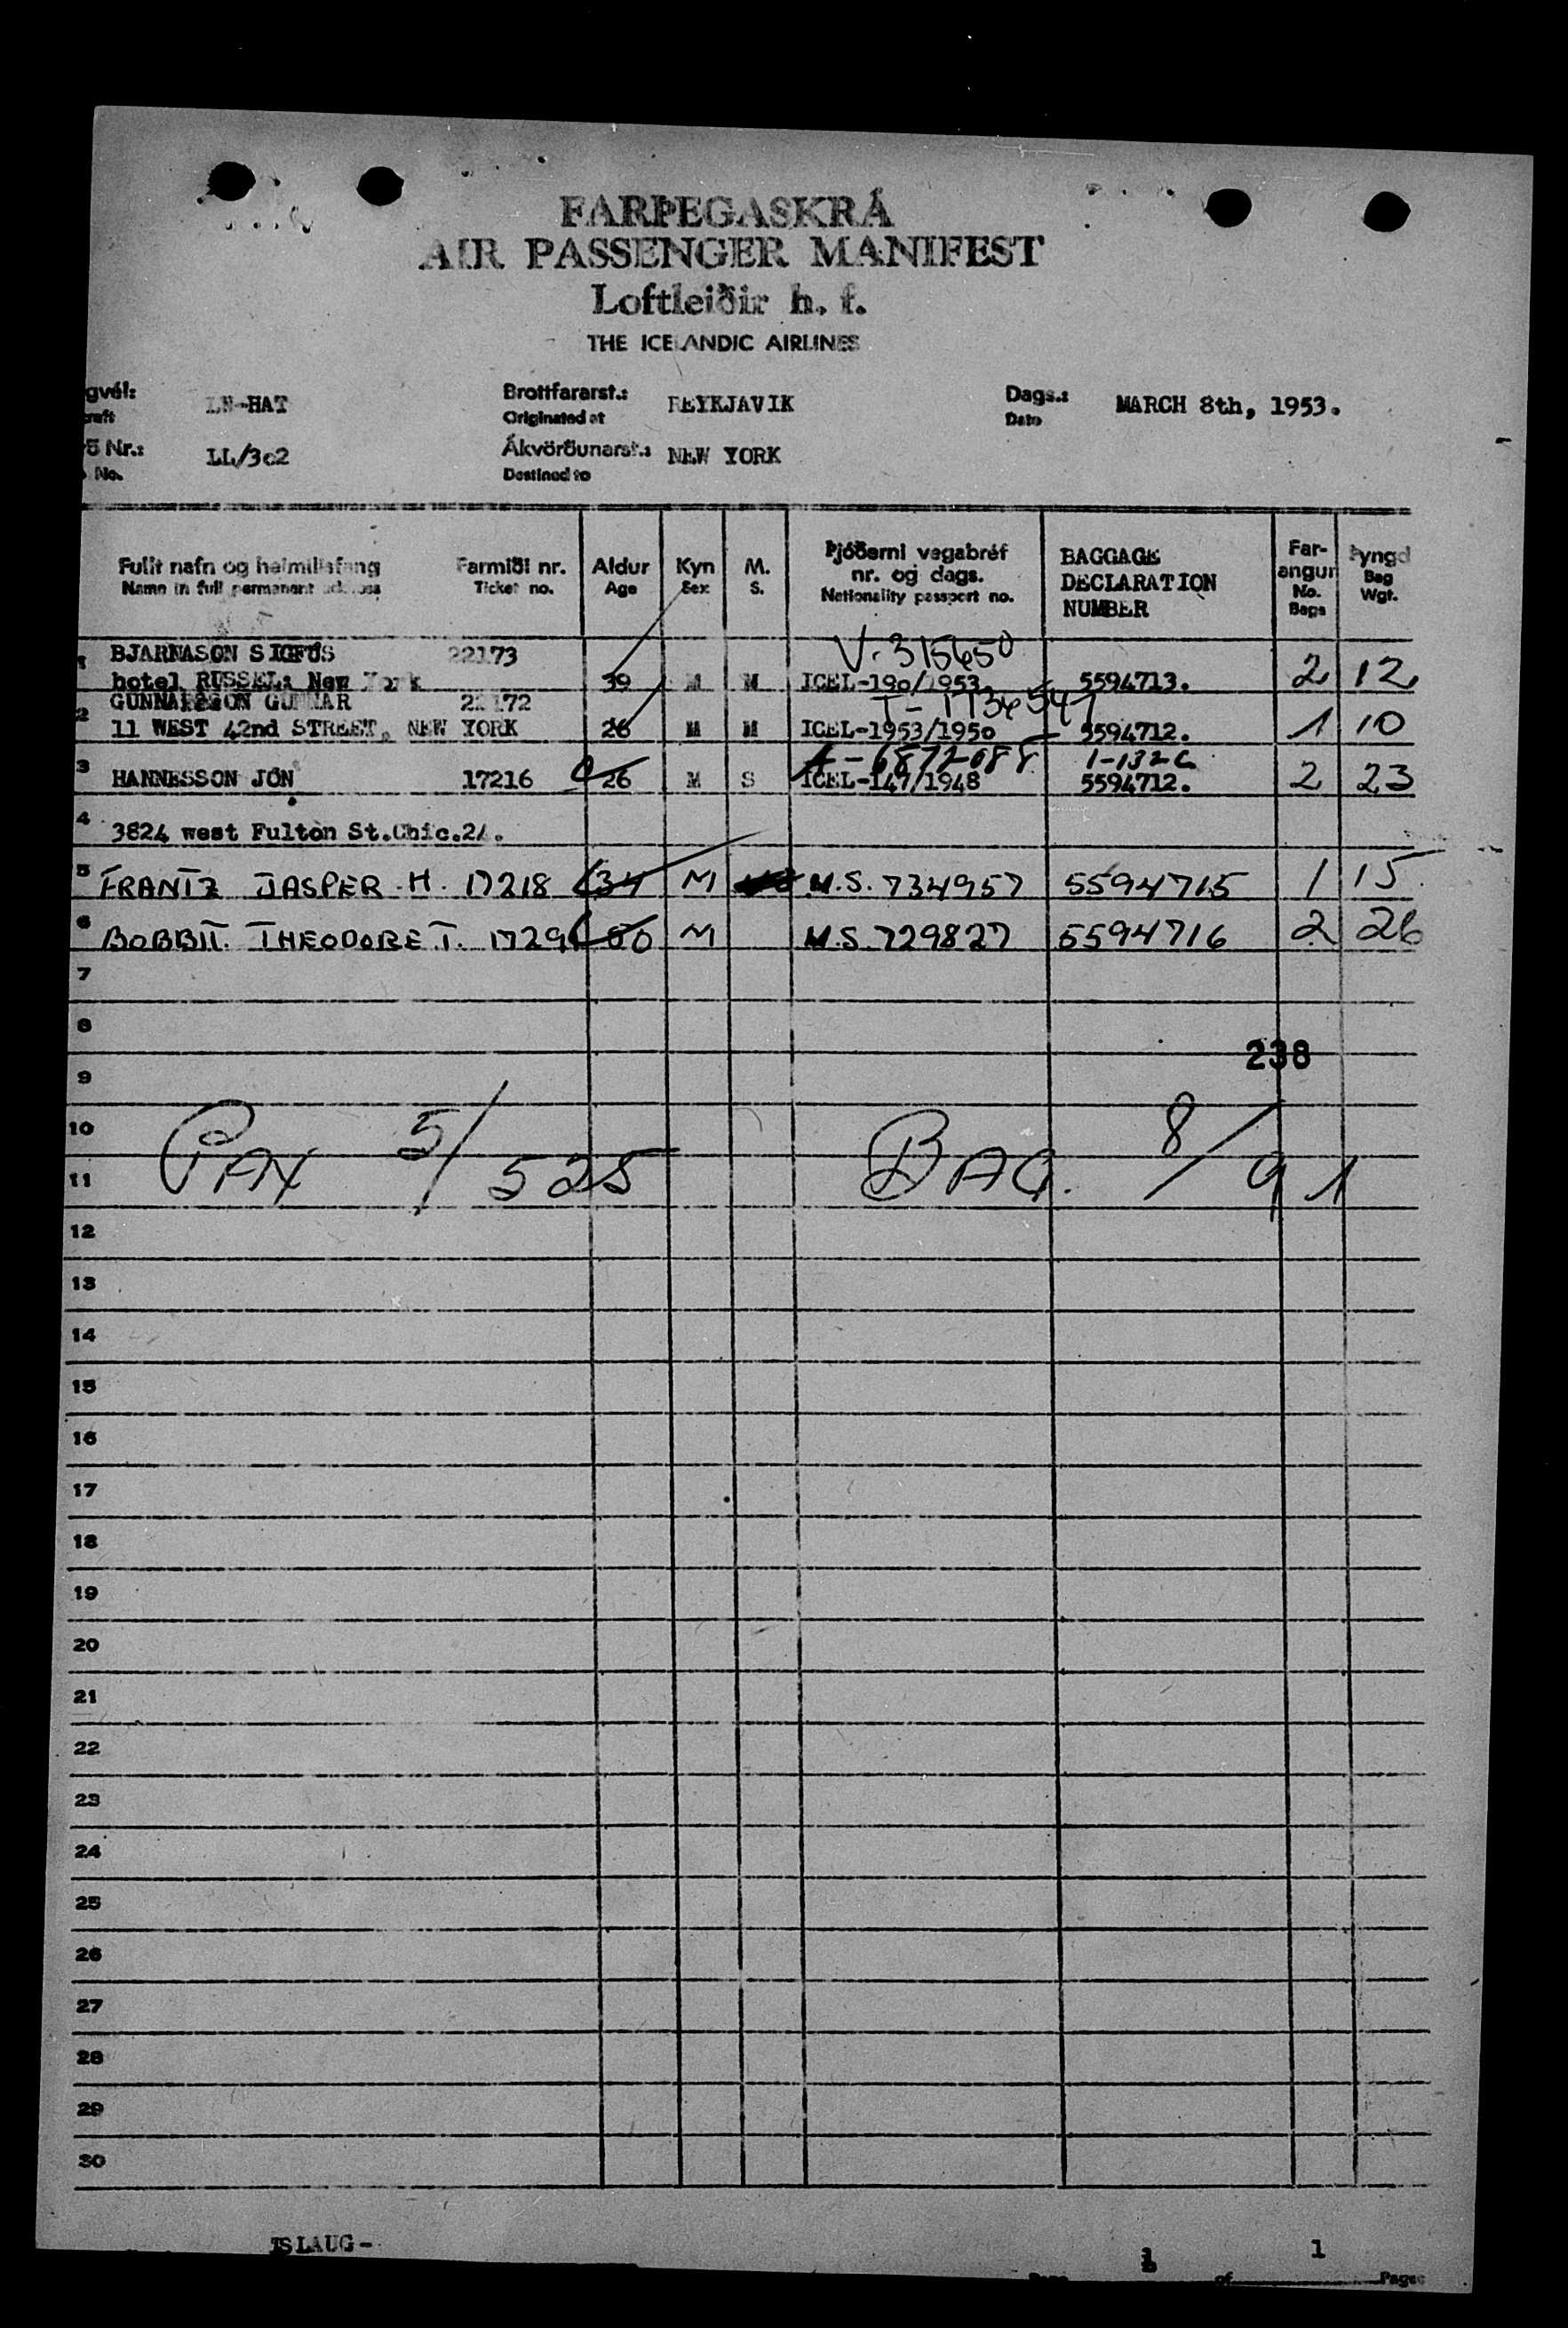 FARÞEGASKRÁ
AIR PASSENGER MANIFEST
Loftleiðir h. f.
THE ICELANDIC AIRLINES
gvél: LN-HAT Brottfararst.: REYKJAVIK Dags.: MARCH 8th, 1953.
craft Originated at Date
ð Nr.: LL/3o2 Ákvörðunarst.: NEW YORK
No. Destined to
Fullt nafn og heimilisfang Farmiði nr. Aldur Kyn M. Þjóðerni vegabréf nr. og dags. BAGGAGE DECLARATION NUMBER Far-angur Þyngd
Name in full permanent address Ticket no. Age Sex S. Nationality passport no. No. Bags Bag Wgt.
V-315650
1 BJARNASON SIGFÚS 22173
hotel RUSSEL: New York 39 M M ICEL-190/1953 5594713. 2 12
T-1734547
2 GUNNARSSON GUNNAR 22172
11 WEST 42nd STREET, NEW YORK 26 M M ICEL-1953/1950 5594712. 1 10
A-6872088 1-132 C
3 HANNESSON JÓN 17216 26 M S ICEL-147/1948 5594712. 2 23
4 3824 west Fulton St.Chic.24.
5 FRANTZ JASPER. H. 17218 34 M U.S. 734957 5594715 1 15
6 BOBBIT. THEODORE T. 1729 M U.S. 729827 5594716 2 26
7
8
238
9
10
PAX 5/525 BAG. 8/91
11
12
13
14
15
16
17
18
19
20
21
22
23
24
25
26
27
28
29
30
ISLAUG-
1 1
Page of Pages